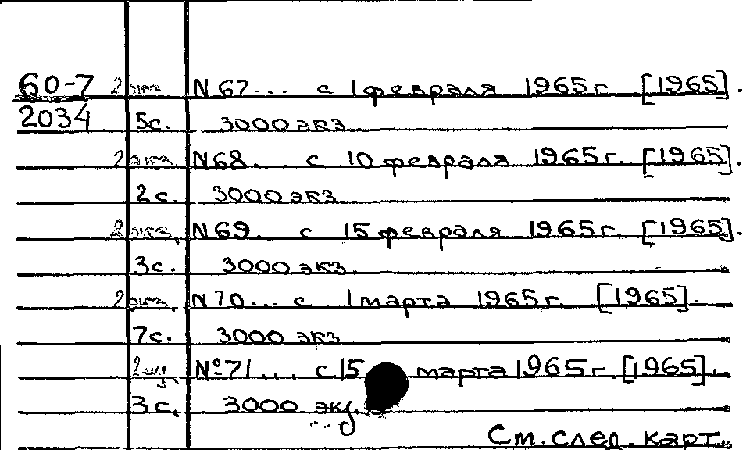 60-7 2 экз. N 67... с 1 февраля 1965 г. [1965].
2034 5с. 3000 экз.
2 экз. N 68. .. с 10 февраля 1965 г. [1965].
2 с. 3000 экз.
2 экз. N 69.. с 15 февраля 1965 г. [1965].
3с. 3000 экз.
2 экз. N 70... с 1 марта 1965 г. [1965].
7с. 3000 экз.
2 экз. № 71... с 15 марта 1965 г. [1965].
3с. 3000 экз.
См. след. карт.